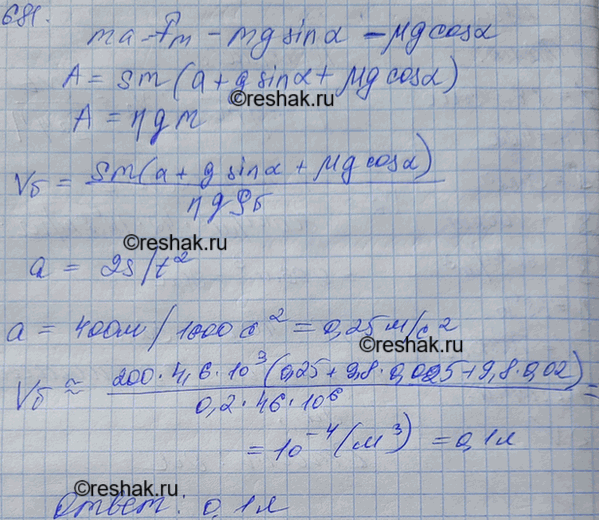 681.
ma - Fm - mg sinα - μg cosα
A = Sm (a + g sinα + μg cosα)
©reshak.ru
A = ηgm
Vб = Sm(a + g sinα + μg cosα) / ηgρб
©reshak.ru
a = 2s/t²
©reshak.ru
a = 400м / 1600 с² = 0,25 м/с²
Vб ≈ 200·4,6·10³ (0,25 + 9,8·0,0025 + 9,8·0,02) / 0,2·46·10⁶ =
= 10⁻⁴ (м³) = 0,1л
©reshak.ru
Ответ: 0,1л